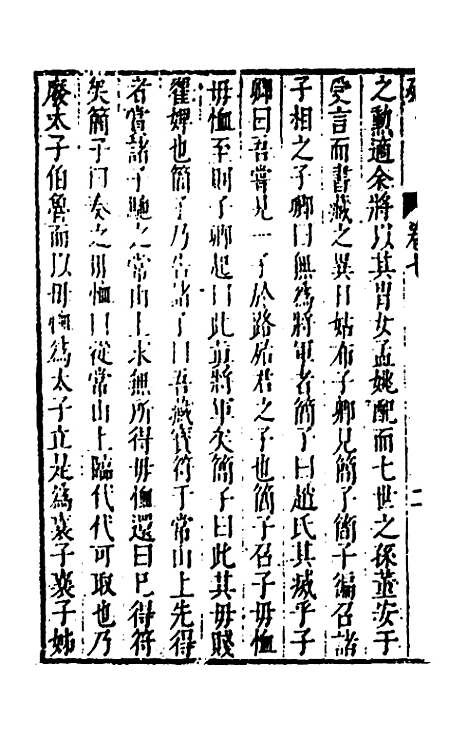 之勲適余將以其胄女孟姚配而七世之孫董安于
受言而書藏之異日姑布子卿見簡子簡子徧召諸
子相之子卿曰無爲將軍者簡子曰趙氏其滅乎子
卿曰吾嘗見一子於路殆君之子也簡子召子毋恤
毋恤至則子卿起曰此眞將軍矣簡子曰此其毋賤
翟婢也簡子乃告諸子曰吾藏寳符于常山上先得
者賞諸子馳之常山上求無所得毋恤還曰已得符
矣簡子曰奏之毋恤曰從常山上臨代代可取也乃
廢太子伯魯而以毋恤爲太子立是爲襄子襄子姊
卷七
二